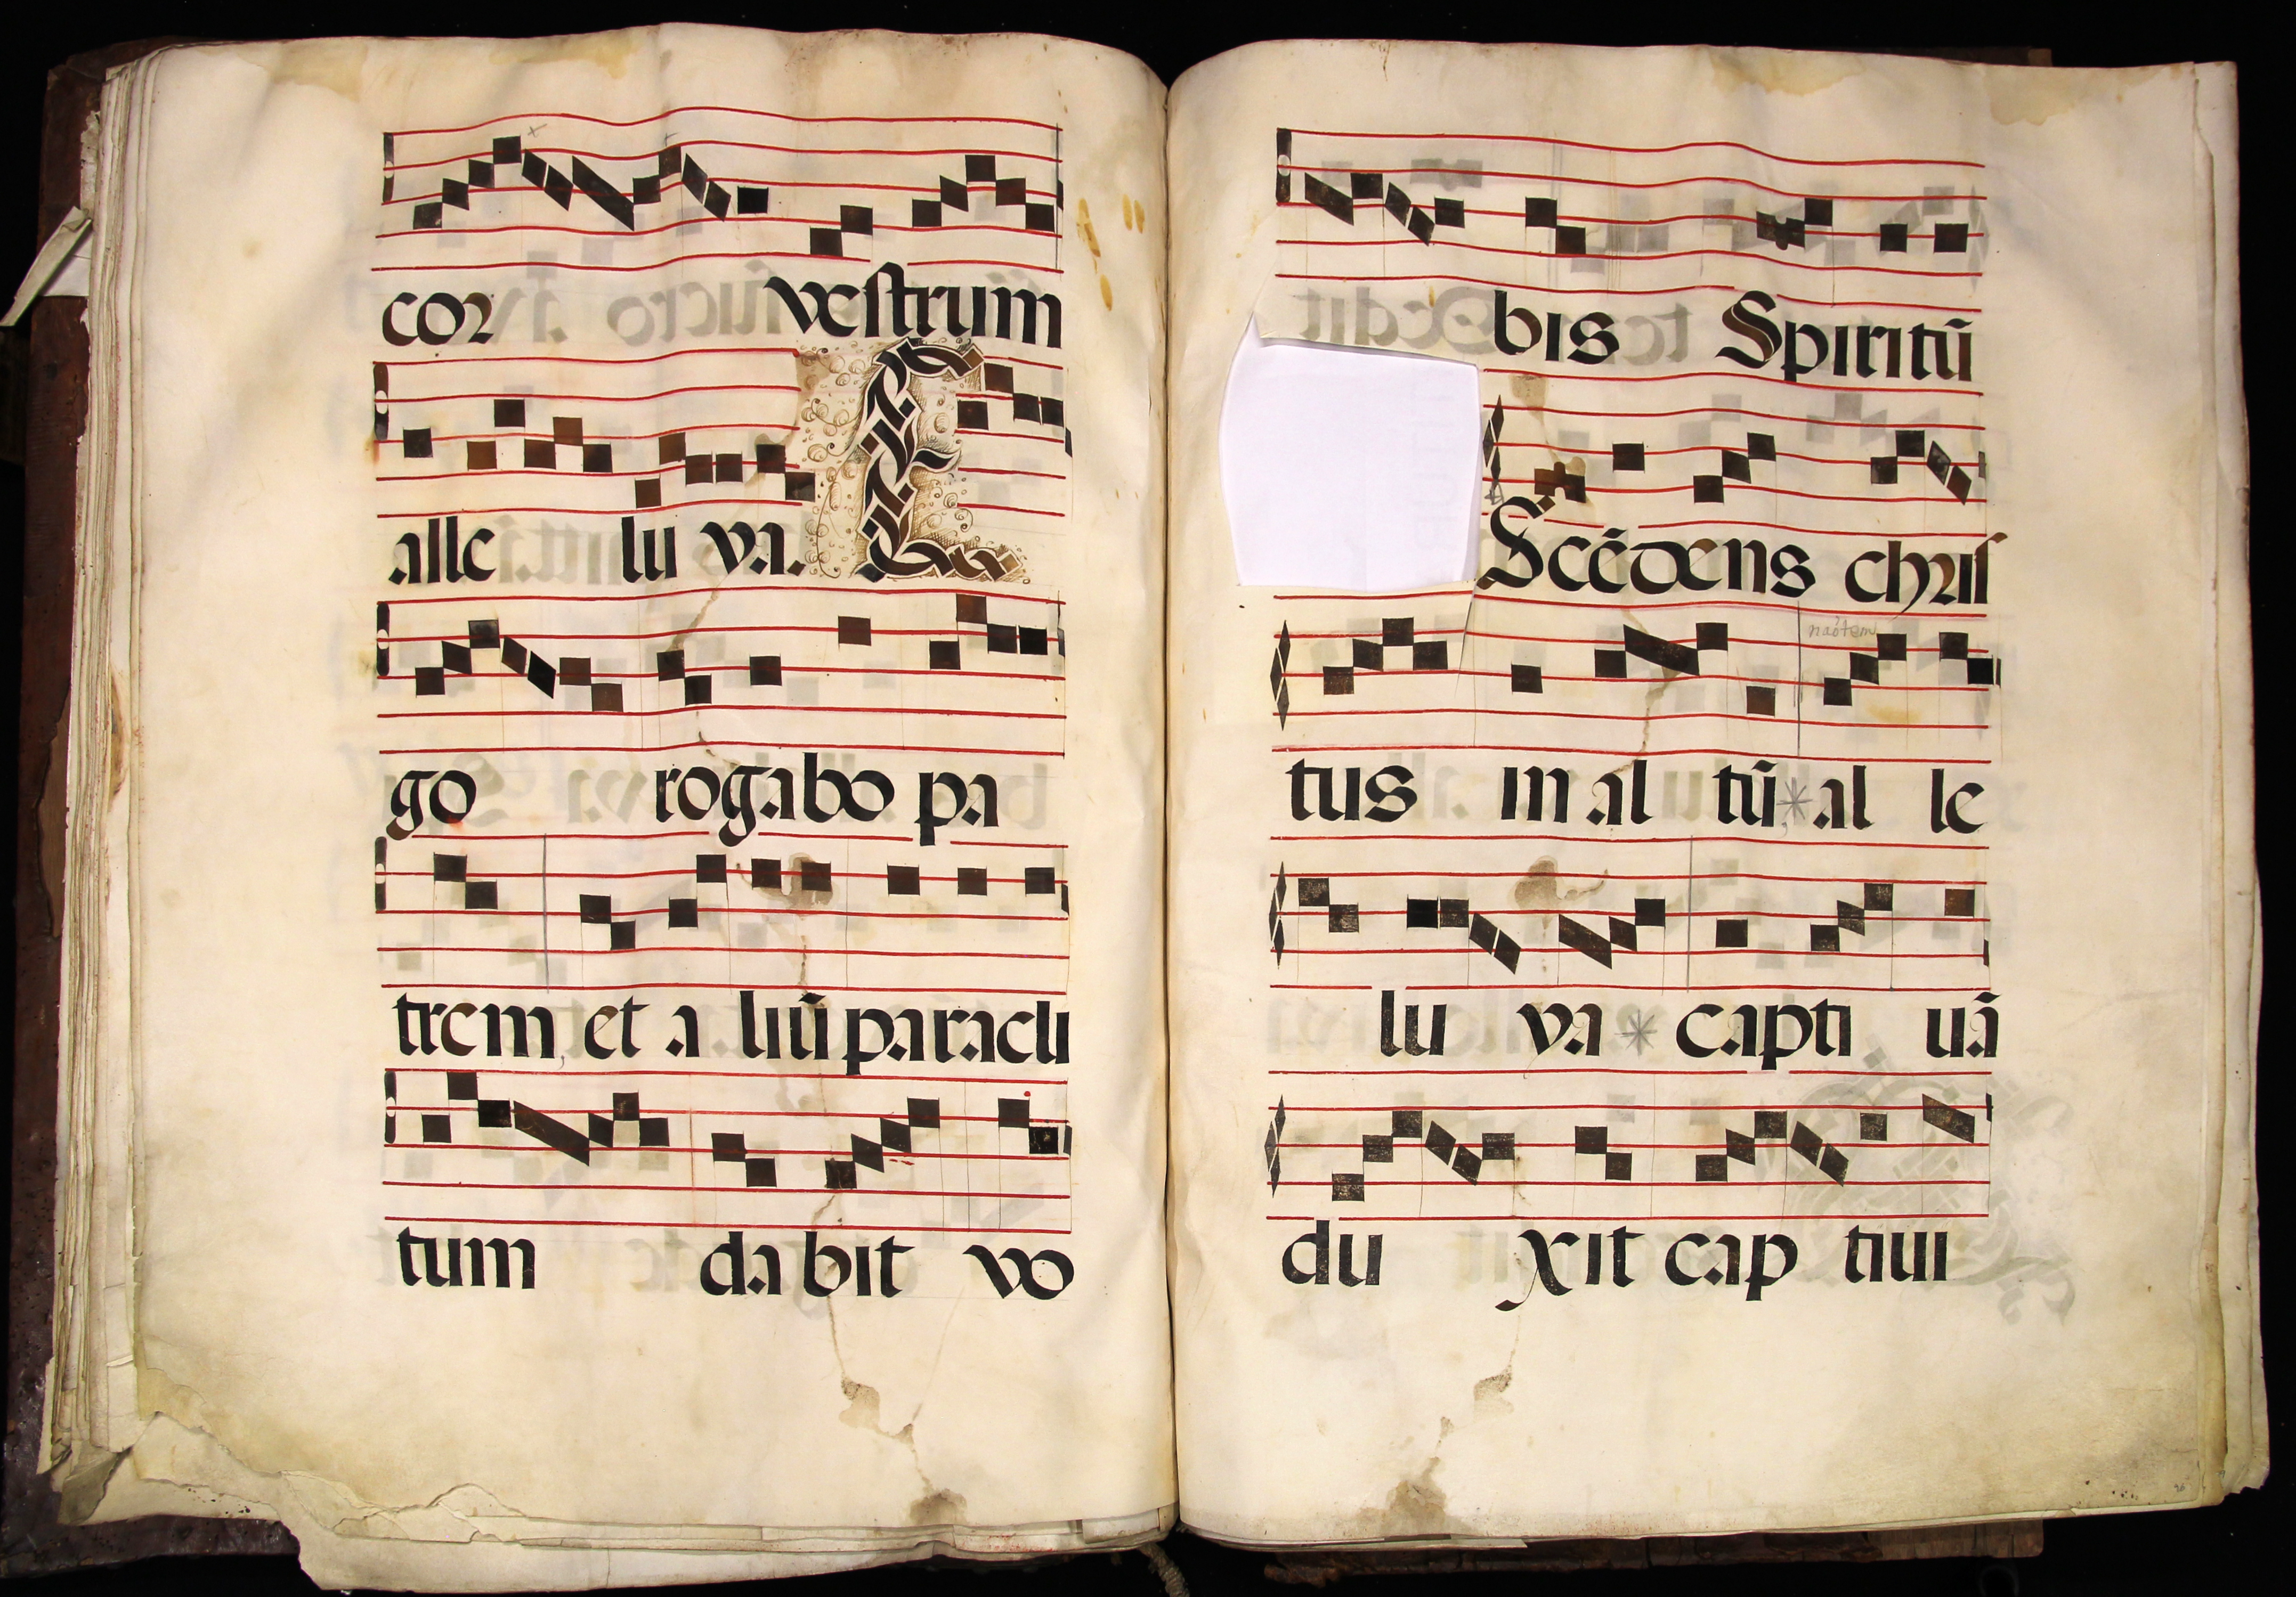 cor vestrum
alle lu ya. E
go rogabo pa
trem, et a liū paracli
tum da bit vo
bis Spiritū
Scēdens chris
naōtem
tus in al tū * al le
lu ya * capti uā
du xit cap tiui